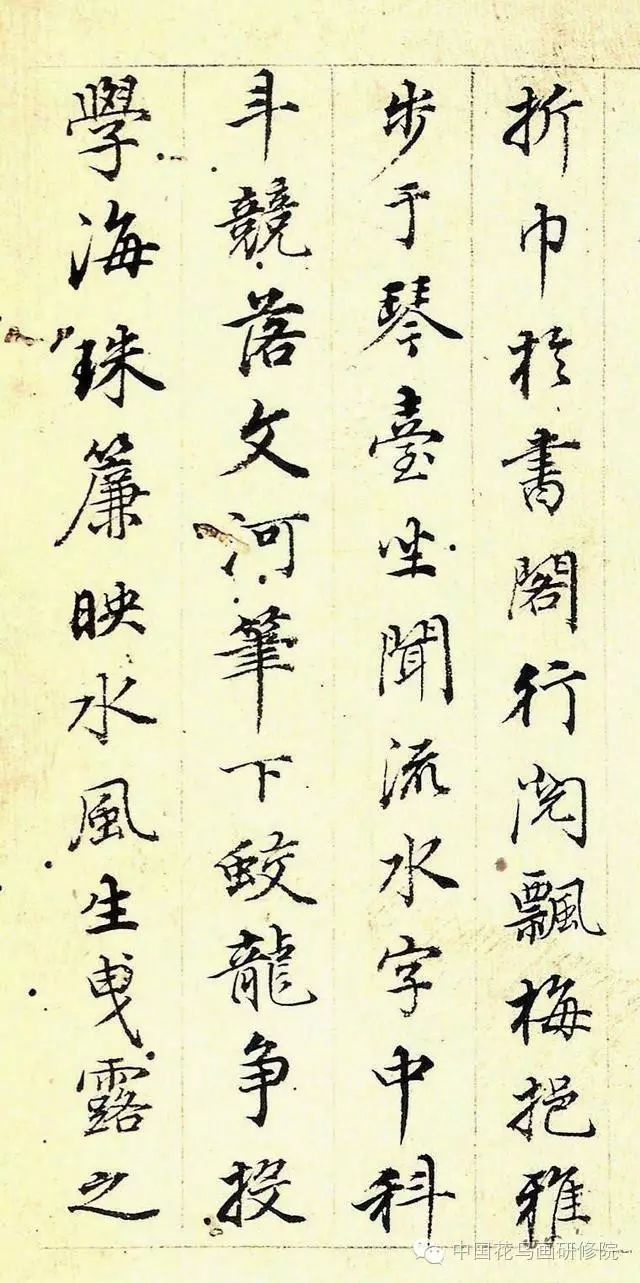 折巾於書閣行閲飄梅挹雅
步于琴臺坐聞流水字中科
斗競落文河筆下蛟龍争投
學海珠簾映水風生曳露之
中国花鸟画研修院